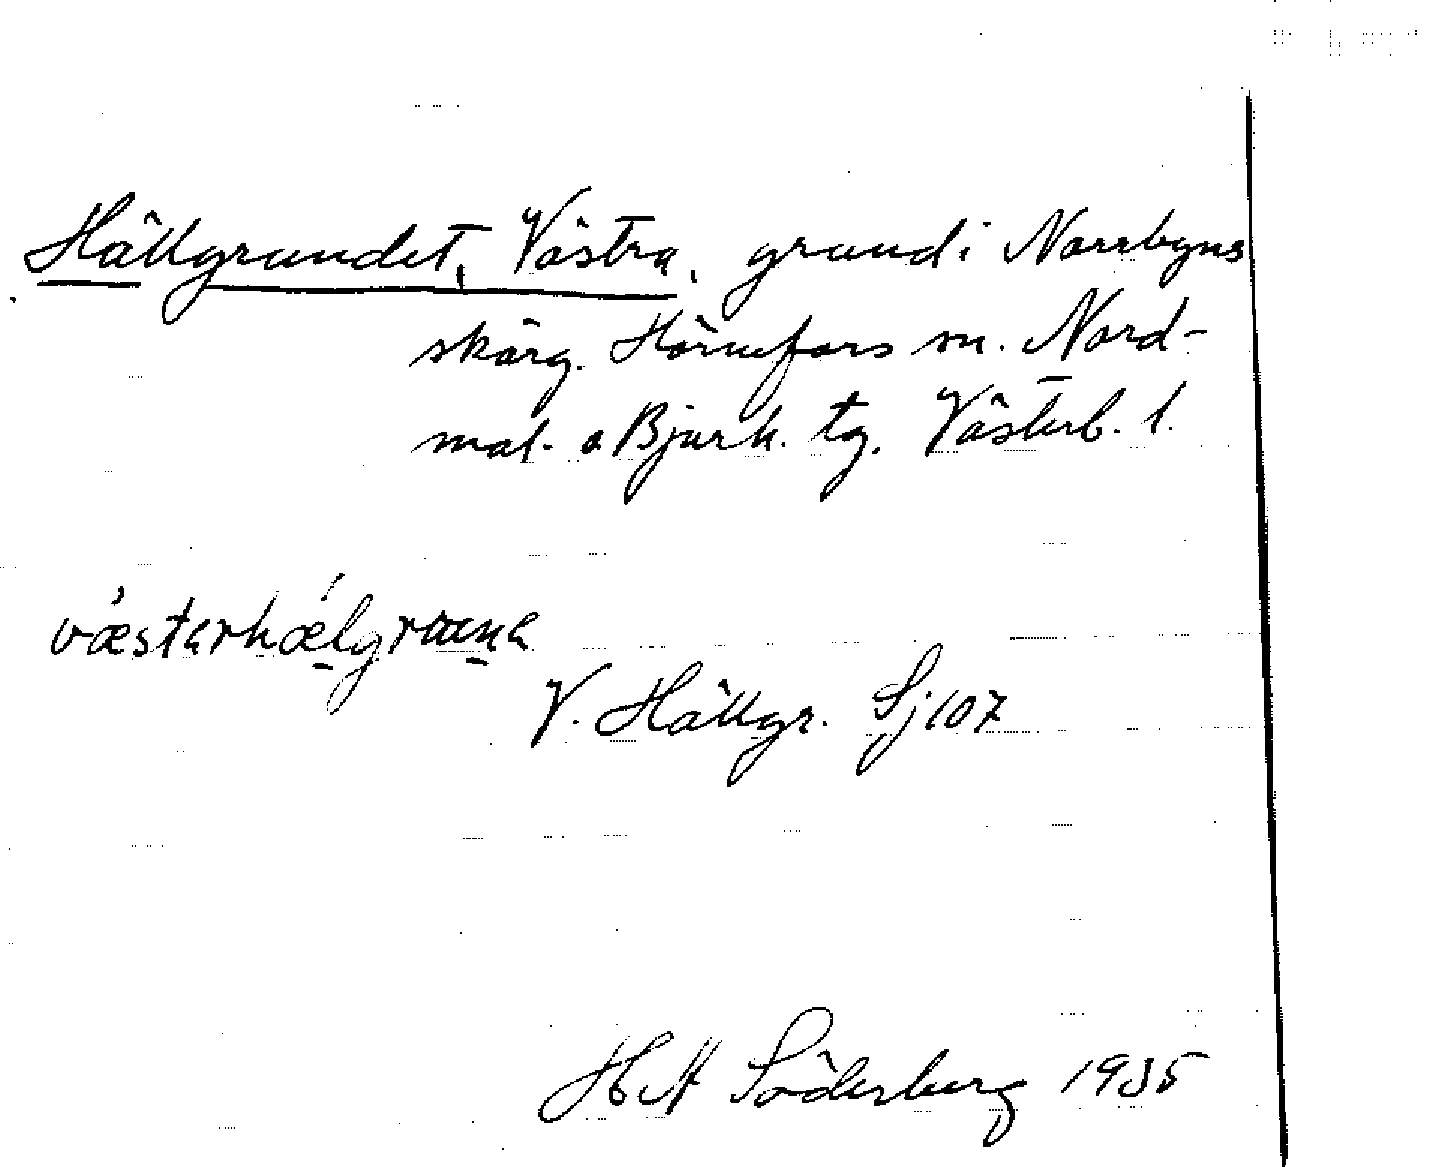 Hällgrundet, Västra, grund i Norrbyns
skärg. Hörnefors sn. Nord-
mal. o Bjurh. tg. Västerb. l.
væstarhælgrɯna
V. Hällgr. Sj 107
H M Söderberg 1935